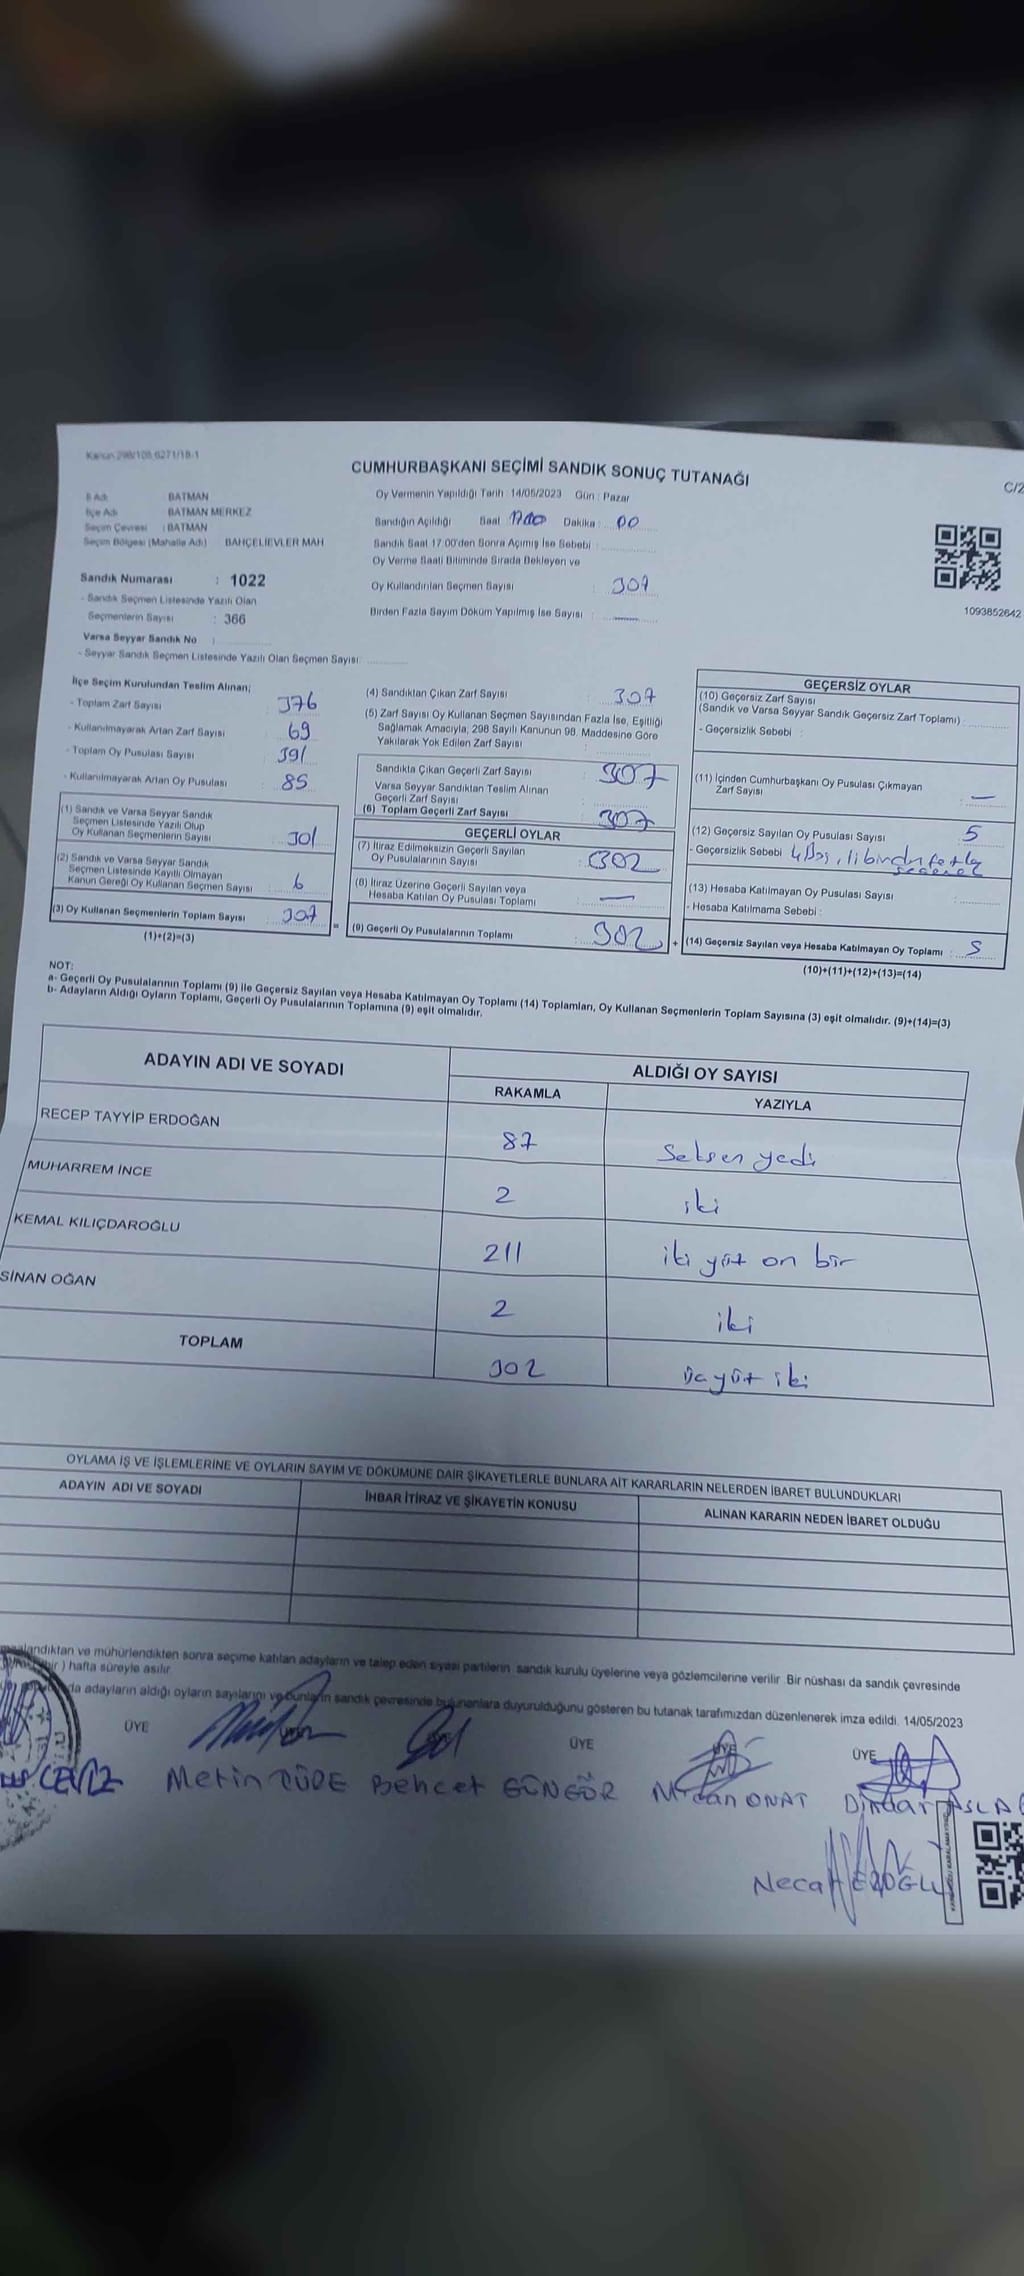 Kanun 298/105 6271/18-1
CUMHURBAŞKANI SEÇİMİ SANDIK SONUÇ TUTANAĞI
C/2
İl Adı BATMAN
İlçe Adı BATMAN MERKEZ
Seçim Çevresi : BATMAN
Seçim Bölgesi (Mahalle Adı) BAHÇELİEVLER MAH
Oy Vermenin Yapıldığı Tarih : 14/05/2023 Gün : Pazar
Sandığın Açıldığı Saat 17:00 Dakika : 00
Sandık Saat 17:00'den Sonra Açılmış İse Sebebi :
Oy Verme Saati Bitiminde Sırada Bekleyen ve
Oy Kullandırılan Seçmen Sayısı : 307
Birden Fazla Sayım Döküm Yapılmış İse Sayısı : —
1093852642
Sandık Numarası : 1022
- Sandık Seçmen Listesinde Yazılı Olan
Seçmenlerin Sayısı : 366
Varsa Seyyar Sandık No :
- Seyyar Sandık Seçmen Listesinde Yazılı Olan Seçmen Sayısı:
İlçe Seçim Kurulundan Teslim Alınan;
- Toplam Zarf Sayısı : 376
- Kullanılmayarak Artan Zarf Sayısı : 69
- Toplam Oy Pusulası Sayısı : 391
- Kullanılmayarak Artan Oy Pusulası : 85
(1) Sandık ve Varsa Seyyar Sandık
Seçmen Listesinde Yazılı Olup
Oy Kullanan Seçmenlerin Sayısı : 301
(2) Sandık ve Varsa Seyyar Sandık
Seçmen Listesinde Kayıtlı Olmayan
Kanun Gereği Oy Kullanan Seçmen Sayısı : 6
(3) Oy Kullanan Seçmenlerin Toplam Sayısı : 307
(1)+(2)=(3)
(4) Sandıktan Çıkan Zarf Sayısı : 307
(5) Zarf Sayısı Oy Kullanan Seçmen Sayısından Fazla İse, Eşitliği
Sağlamak Amacıyla, 298 Sayılı Kanunun 98. Maddesine Göre
Yakılarak Yok Edilen Zarf Sayısı :
Sandıkta Çıkan Geçerli Zarf Sayısı : 307
Varsa Seyyar Sandıktan Teslim Alınan
Geçerli Zarf Sayısı :
(6) Toplam Geçerli Zarf Sayısı : 307
=
GEÇERLİ OYLAR
(7) İtiraz Edilmeksizin Geçerli Sayılan
Oy Pusulalarının Sayısı : 302
(8) İtiraz Üzerine Geçerli Sayılan veya
Hesaba Katılan Oy Pusulası Toplamı : —
(9) Geçerli Oy Pusulalarının Toplamı : 302
+
GEÇERSİZ OYLAR
(10) Geçersiz Zarf Sayısı
(Sandık ve Varsa Seyyar Sandık Geçersiz Zarf Toplamı) :
- Geçersizlik Sebebi :
(11) İçinden Cumhurbaşkanı Oy Pusulası Çıkmayan
Zarf Sayısı : —
(12) Geçersiz Sayılan Oy Pusulası Sayısı : 5
- Geçersizlik Sebebi 4 Boş, 1 i birden fazla
(13) Hesaba Katılmayan Oy Pusulası Sayısı :
- Hesaba Katılmama Sebebi :
(14) Geçersiz Sayılan veya Hesaba Katılmayan Oy Toplamı : 5
(10)+(11)+(12)+(13)=(14)
NOT:
a- Geçerli Oy Pusulalarının Toplamı (9) ile Geçersiz Sayılan veya Hesaba Katılmayan Oy Toplamı (14) Toplamları, Oy Kullanan Seçmenlerin Toplam Sayısına (3) eşit olmalıdır. (9)+(14)=(3)
b- Adayların Aldığı Oyların Toplamı, Geçerli Oy Pusulalarının Toplamına (9) eşit olmalıdır.
ADAYIN ADI VE SOYADI ALDIĞI OY SAYISI
RAKAMLA YAZIYLA
RECEP TAYYİP ERDOĞAN 87 Seksen yedi
MUHARREM İNCE 2 iki
KEMAL KILIÇDAROĞLU 211 iki yüz on bir
SİNAN OĞAN 2 iki
TOPLAM 302 üç yüz iki
OYLAMA İŞ VE İŞLEMLERİNE VE OYLARIN SAYIM VE DÖKÜMÜNE DAİR ŞİKAYETLERLE BUNLARA AİT KARARLARIN NELERDEN İBARET BULUNDUKLARI
ADAYIN ADI VE SOYADI İHBAR İTİRAZ VE ŞİKAYETİN KONUSU ALINAN KARARIN NEDEN İBARET OLDUĞU
ndıktan ve mühürlendikten sonra seçime katılan adayların ve talep eden siyasi partilerin sandık kurulu üyelerine veya gözlemcilerine verilir. Bir nüshası da sandık çevresinde
bir ) hafta süreyle asılır.
da adayların aldığı oyların sayılarını ve bunların sandık çevresinde bulunanlara duyurulduğunu gösteren bu tutanak tarafımızdan düzenlenerek imza edildi. 14/05/2023
ÜYE ÜYE ÜYE ÜYE
CEVİZ Metin Behcet GÜNGÖR ONAT Dindar ASLA